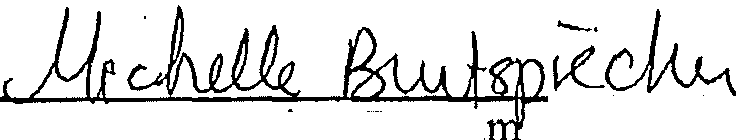 Michelle Brutspiecher
m